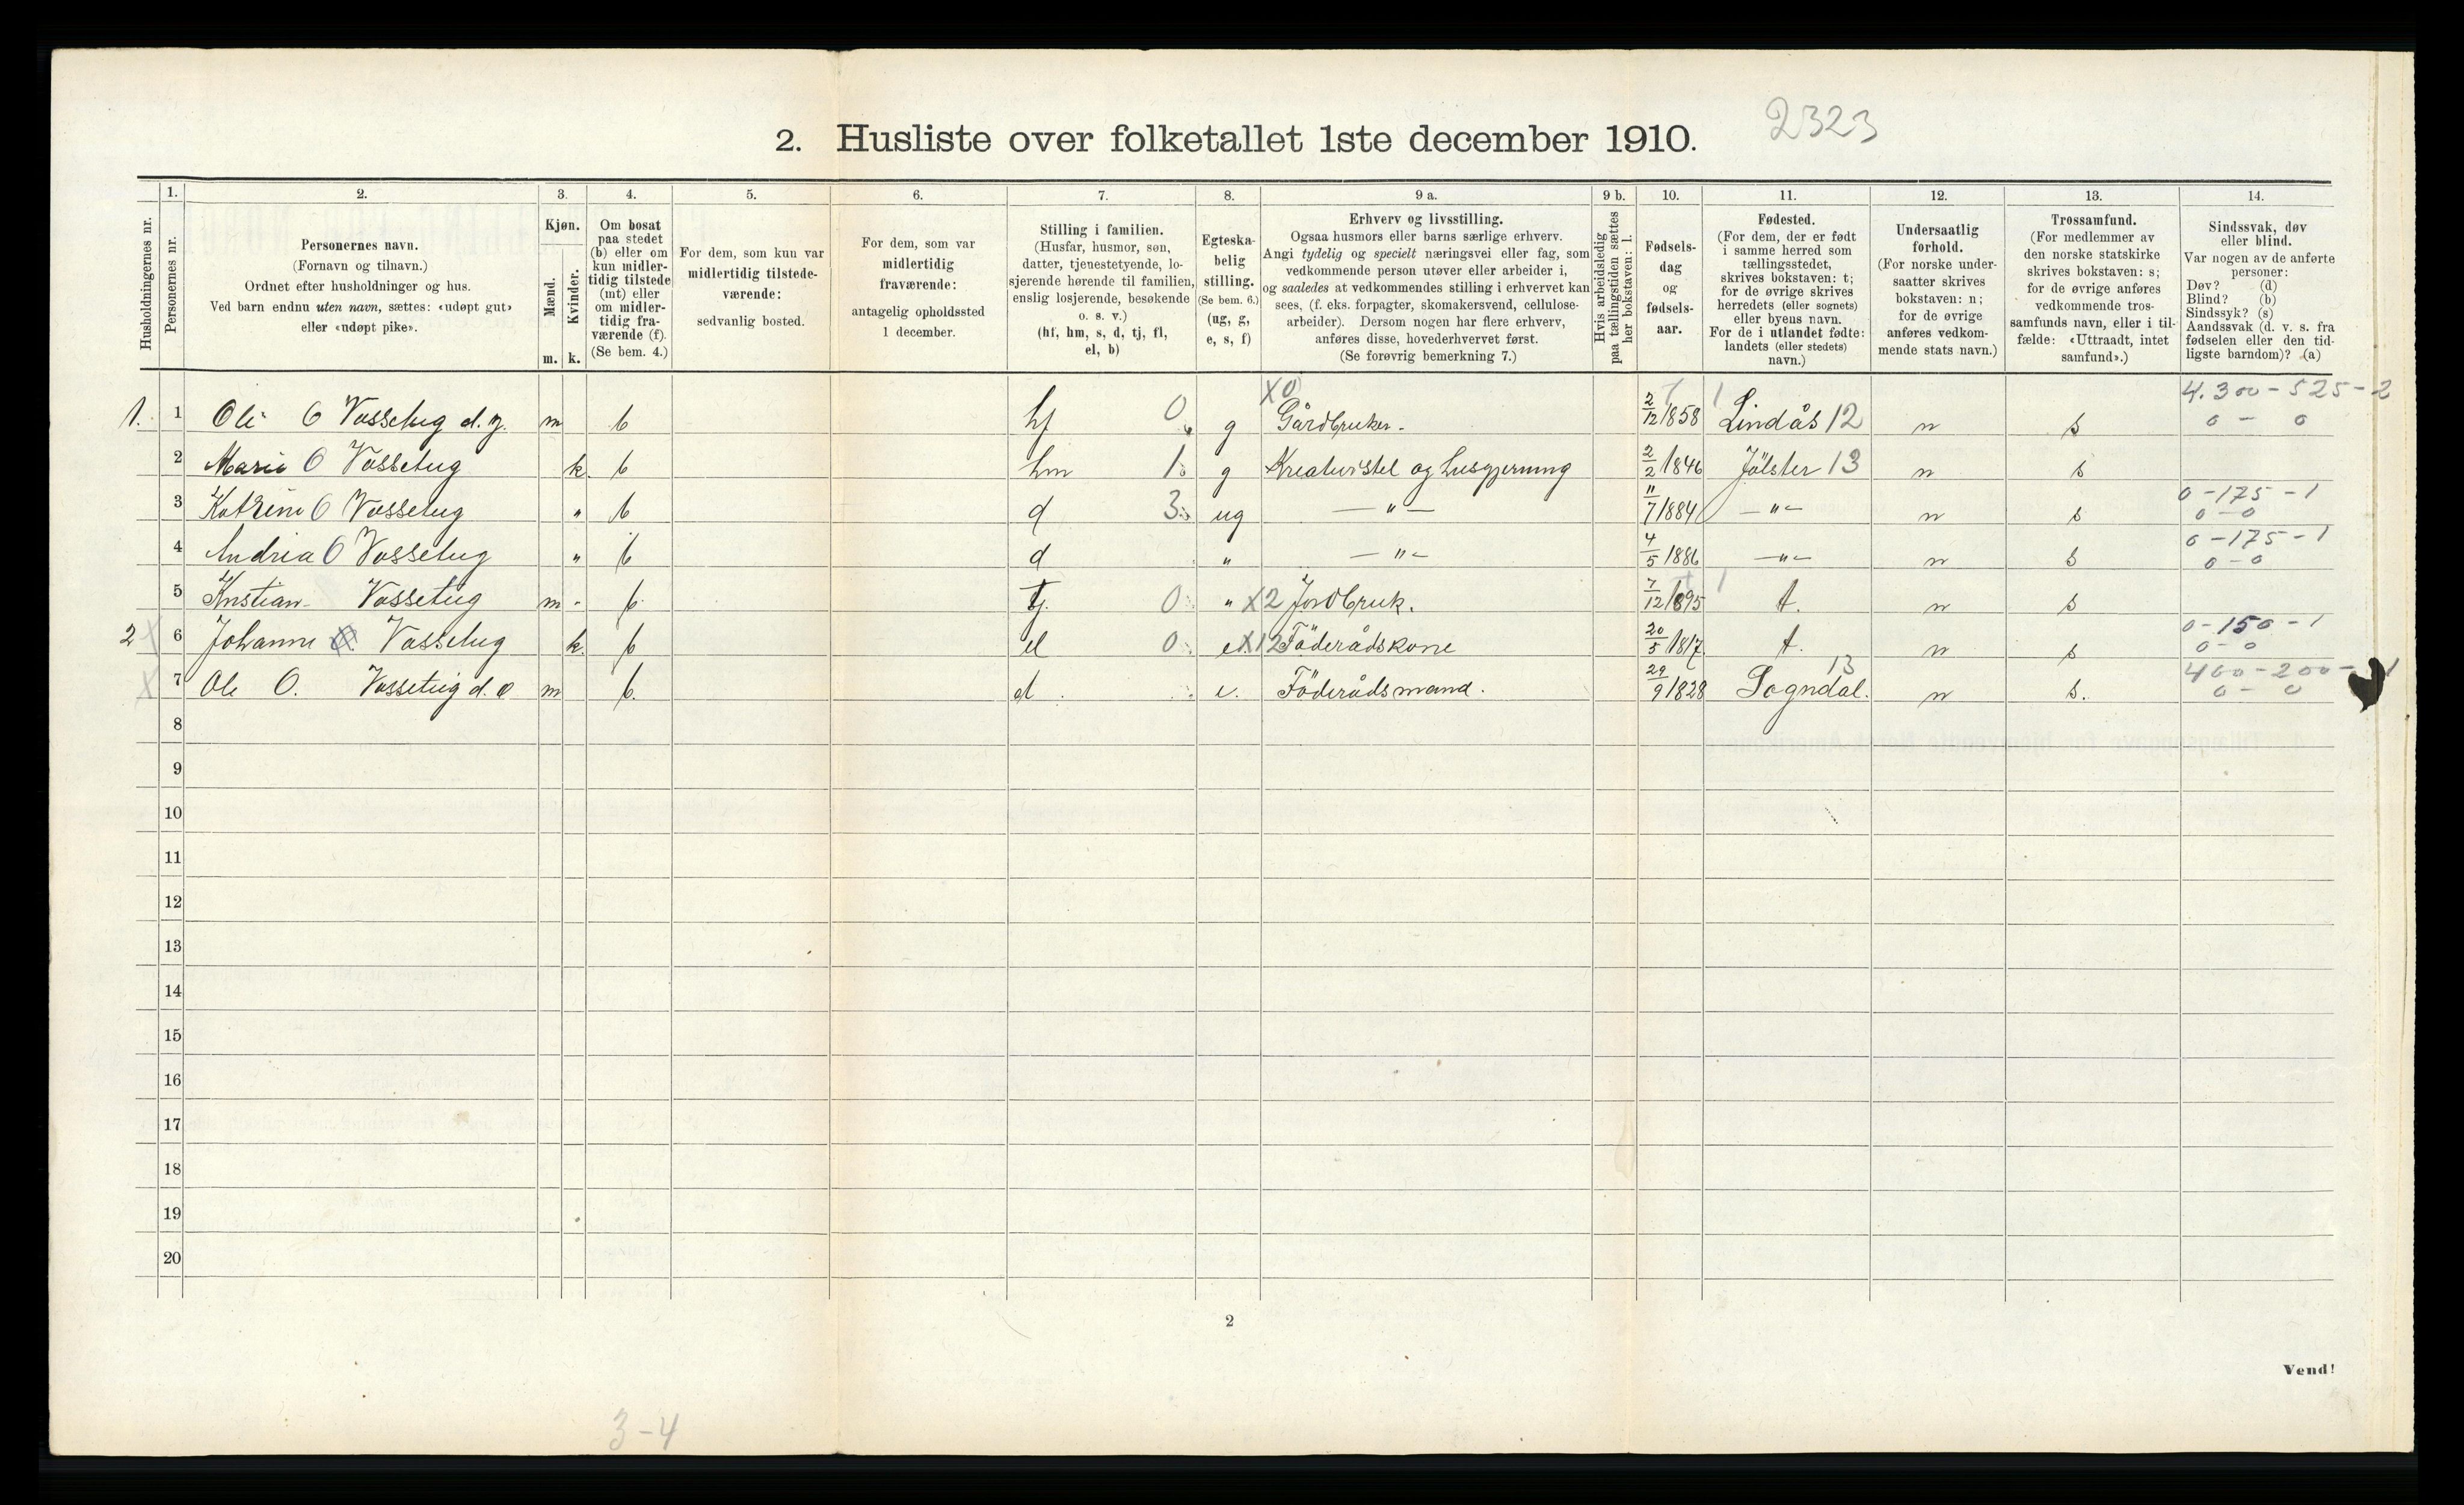 2323
2. Husliste over folketallet 1ste december 1910.
Husholdningernes nr.
1.
Personernes nr.
2.
Personernes navn.
(Fornavn og tilnavn.)
Ordnet efter husholdninger og hus.
Ved barn endnu uten navn, sættes: «udøpt gut»
eller «udøpt pike».
3.
Kjøn.
Mænd.
Kvinder.
m. k.
4.
Om bosat
paa stedet
(b) eller om
kun midler-
tidig tilstede
(mt) eller
om midler-
tidig fra-
værende (f).
(Se bem. 4.)
5.
For dem, som kun var
midlertidig tilstede-
værende:
sedvanlig bosted.
6.
For dem, som var
midlertidig
fraværende:
antagelig opholdssted
1 december.
7.
Stilling i familien.
(Husfar, husmor, søn,
datter, tjenestetyende, lo-
sjerende hørende til familien,
enslig losjerende, besøkende
o. s. v.)
(hf, hm, s, d, tj, fl,
el, b)
8.
Egteska-
belig
stilling.
(Se bem. 6.)
(ug, g,
e, s, f)
9 a.
Erhverv og livsstilling.
Ogsaa husmors eller barns særlige erhverv.
Angi tydelig og specielt næringsvei eller fag, som
vedkommende person utøver eller arbeider i,
og saaledes at vedkommendes stilling i erhvervet kan
sees, (f. eks. forpagter, skomakersvend, cellulose-
arbeider). Dersom nogen har flere erhverv,
anføres disse, hovederhvervet først.
(Se forøvrig bemerkning 7.)
9 b.
Hvis arbeidsledig
paa tællingstiden sættes
her bokstaven: l.
10.
Fødsels-
dag
og
fødsels-
aar.
11.
Fødested.
(For dem, der er født
i samme herred som
tællingsstedet,
skrives bokstaven: t;
for de øvrige skrives
herredets (eller sognets)
eller byens navn.
For de i utlandet fødte:
landets (eller stedets)
navn.)
12.
Undersaatlig
forhold.
(For norske under-
saatter skrives
bokstaven: n;
for de øvrige
anføres vedkom-
mende stats navn.)
13.
Trossamfund.
(For medlemmer av
den norske statskirke
skrives bokstaven: s;
for de øvrige anføres
vedkommende tros-
samfunds navn, eller i til-
fælde: «Uttraadt, intet
samfund».)
14.
Sindssvak, døv
eller blind.
Var nogen av de anførte
personer:
Døv? (d)
Blind? (b)
Sindssyk? (s)
Aandssvak (d. v. s. fra
fødselen eller den tid-
ligste barndom)? (a)
X0 1 4.300-525-2
1. 1 Ole O Vassetug d.y. m b hf 0 g Gårdbruker. 2/12 1858 Lindås 12 n s 0 - 0
2 Marie O Vassetug k. b hm 1 g Kreaturstel og husgjerning 2/2 1846 Jölster 13 n s
0-175-1
3 Katrine O Vassetug " b d 3 ug — " — 11/7 1884 — " — n s 0-0
0-175-1
4 Andrea O Vassetug " b d " — " — 4/5 1886 — " — n s 0-0
5 Kristian Vassetug m b tj. 0 " X2 Jordbruk. 7/12 1895 t. n s
0-150-1
2 X 6 Johanne Vassetug k. b el 0 e X12 Föderådskone 20/5 1817 t. n s 0-0
13 400-200-1
X 7 Ole O. Vassetug d.e m b. el e. Föderådsmand. 29/9 1828 Sogndal. n s. 0 - 0
8
9
10
11
12
13
14
15
16
17
18
19
20
2
Vend!
3-4